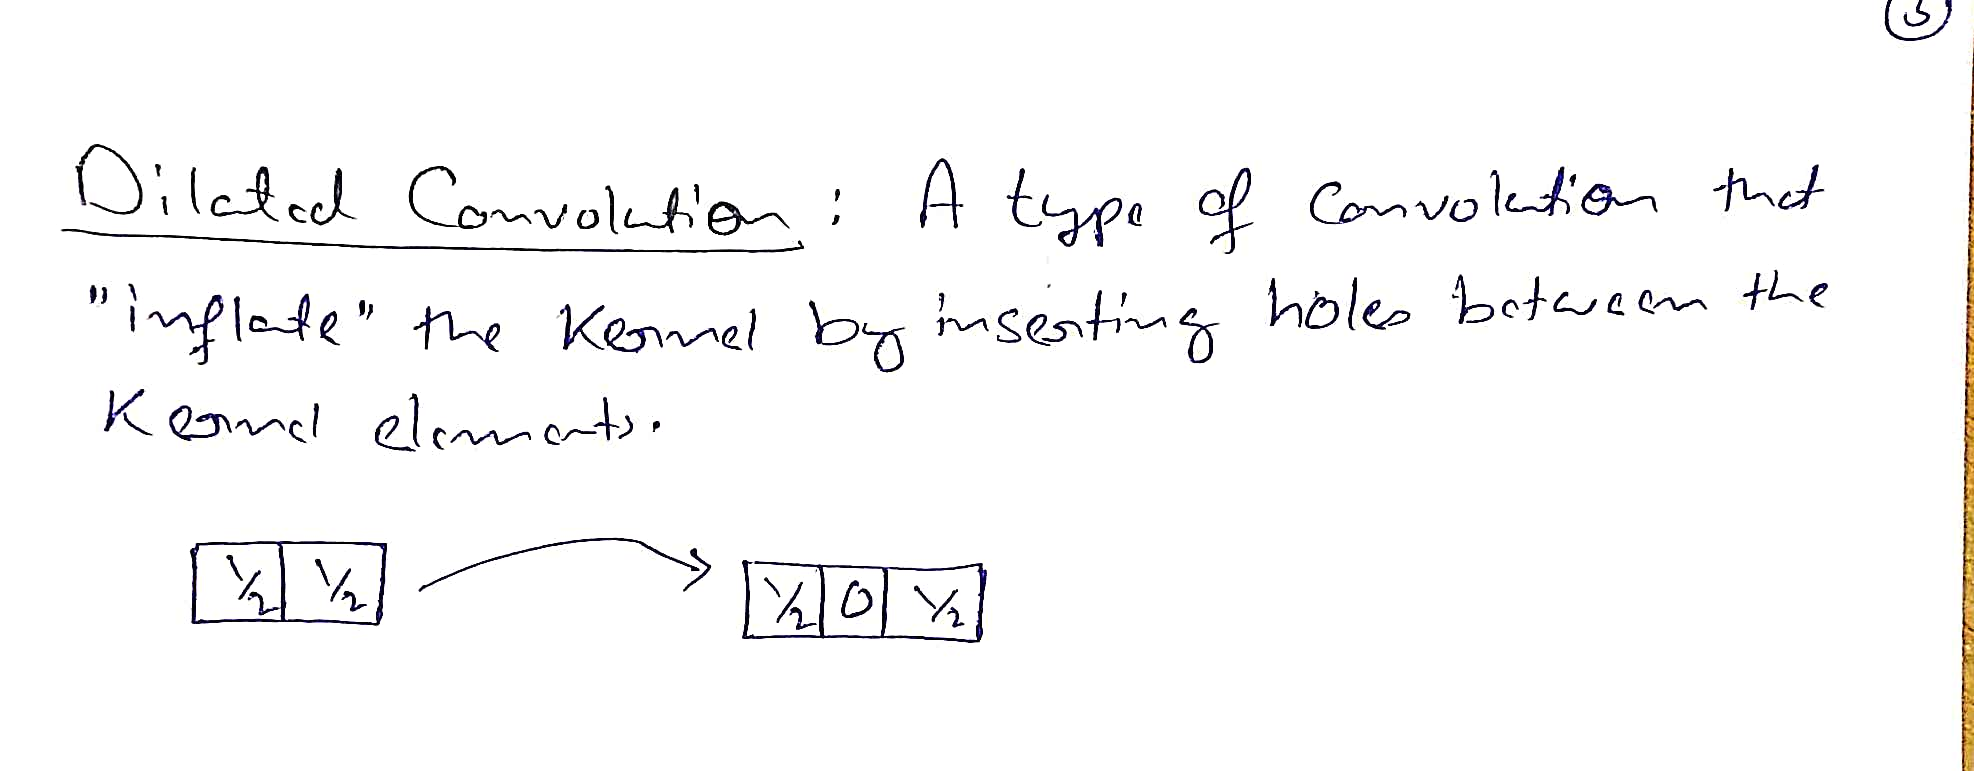 Dilated Convolution : A type of Convolution that
"inflate" the Kernel by inserting holes between the
Kernel elements.
1/2 1/2
1/2 0 1/2